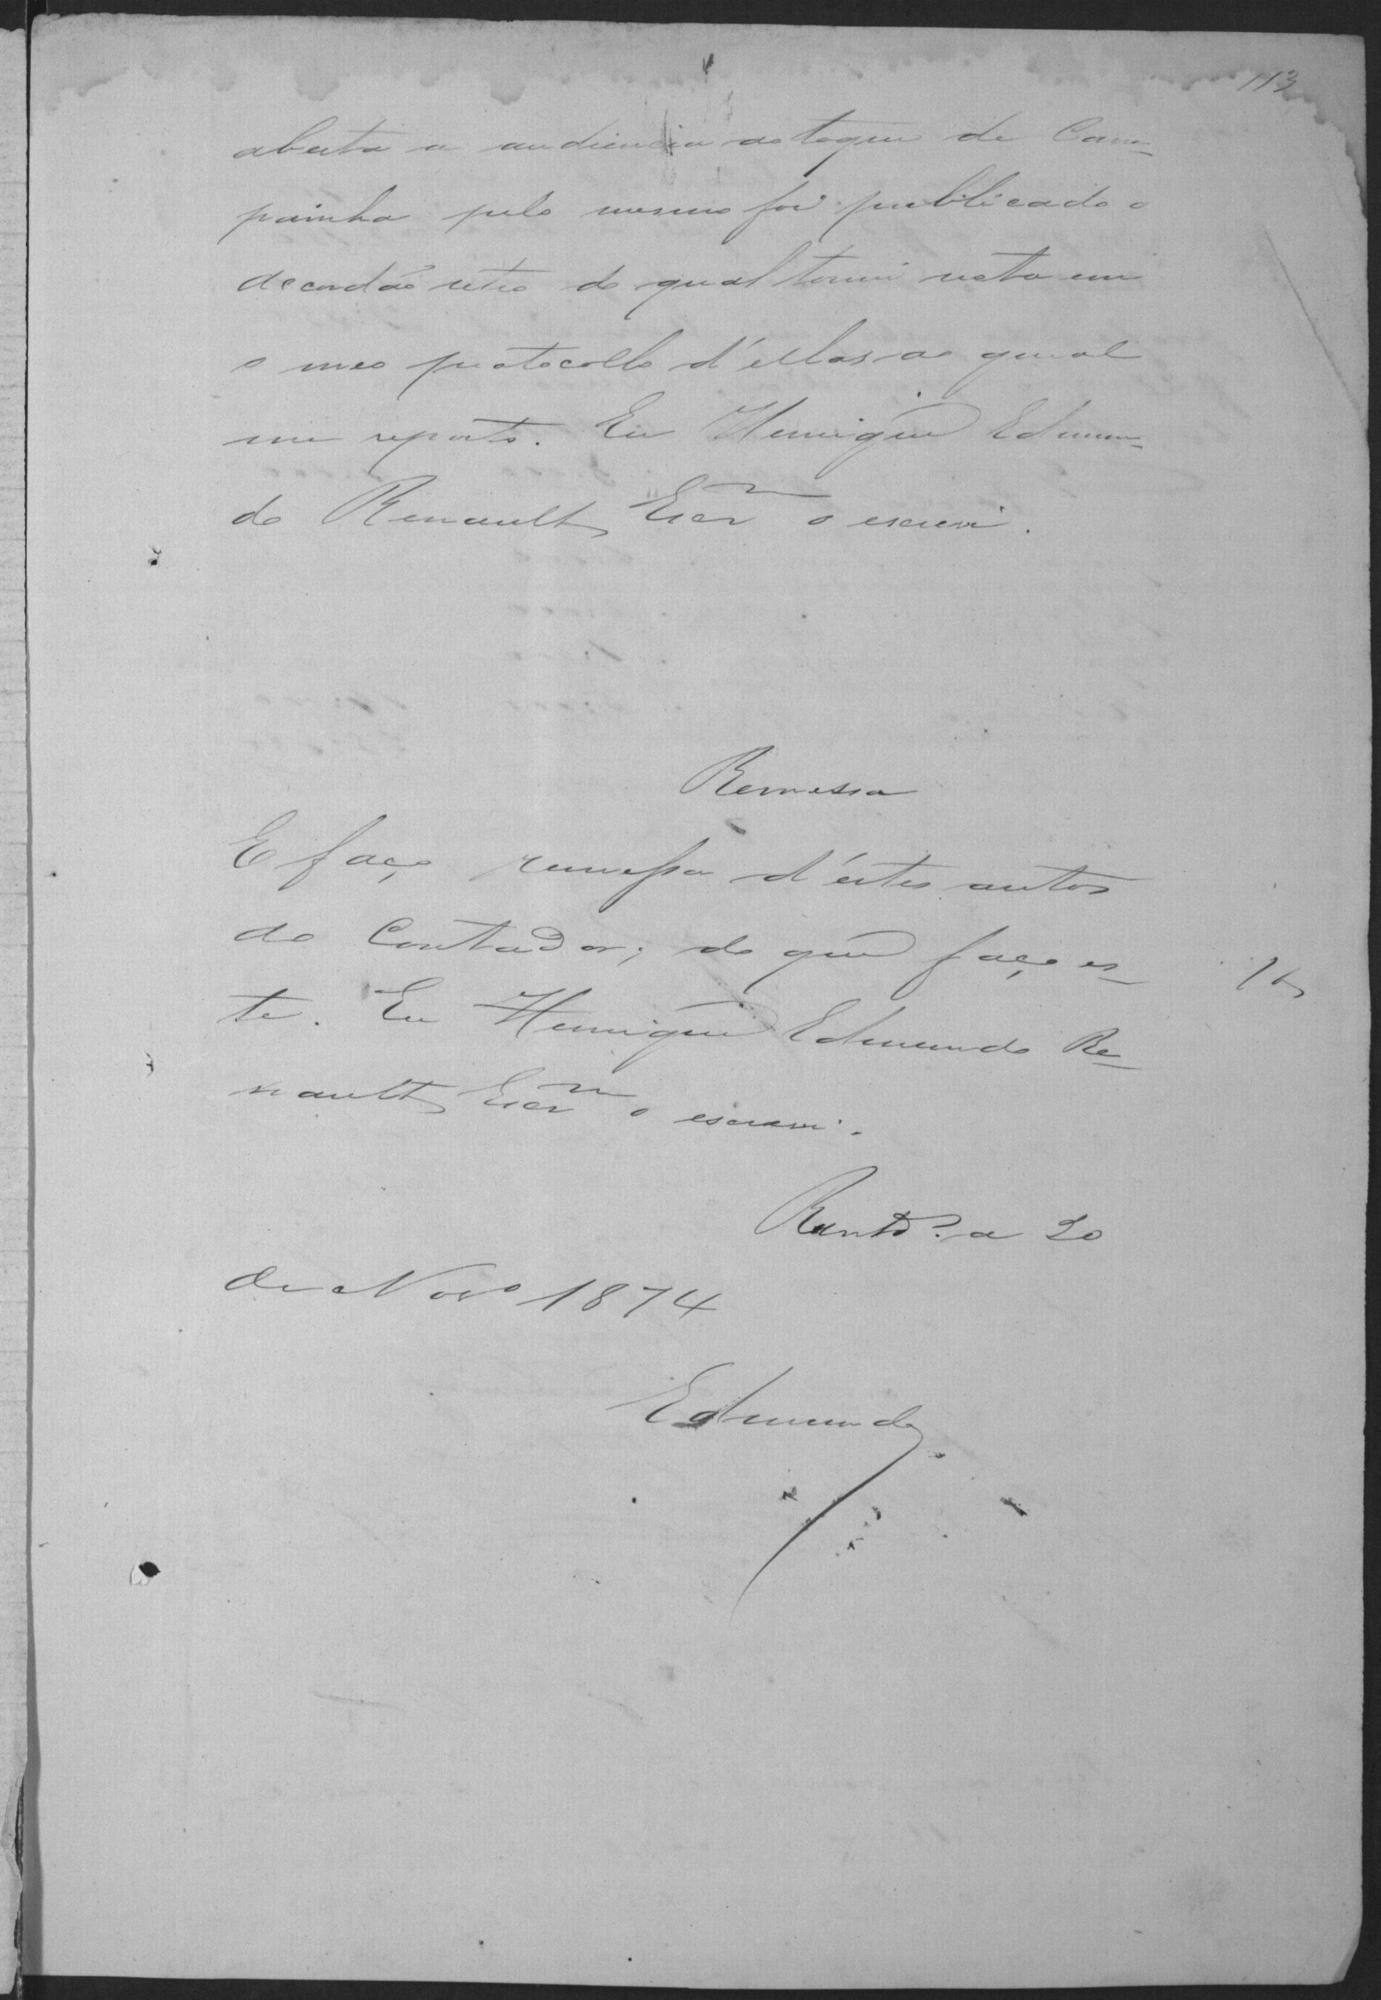 113
aberta a audiencia ao toque de Cam-
painha pelo mesmo foi publicado o
accordão retro do qual tomei nota em
o meo protocollo d'ellas ao qual
me reporto. Eu Henrique Edmun-
do Renault Escr.m o escrevi.
Remessa
E faço remessa d'estes autos
ao Contador; do que faço es-
te. Eu Henrique Edmundo Re-
nault Escr.m o escrevi.
a 20
de Novo 1874
Edmundo